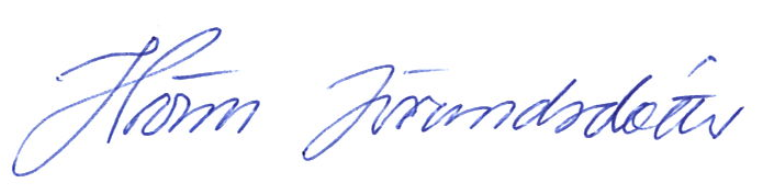 Hrönn Jörundsdóttir